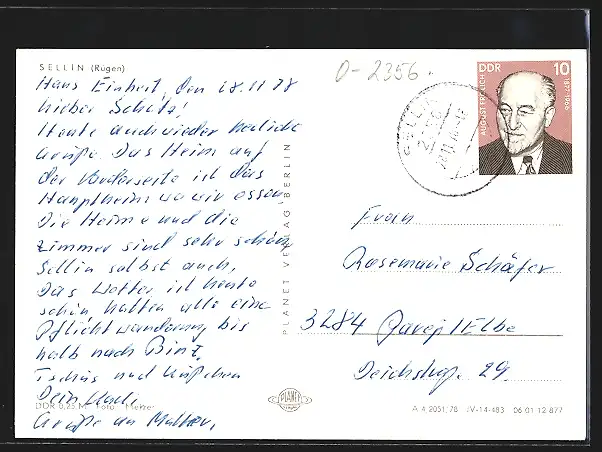 SELLIN (Rügen)
Haus Einheit, den 18.11 78
Lieber Schatz!
Heute auch wieder herzliche
Grüße. Das Heim auf
der Vorderseite ist das
Hauptheim wo wir essen
Die Heime und die
Zimmer sind sehr schön,
Sellin selbst auch,
Das Wetter ist heute
schön hatten alle eine
Pflichtwanderung bis
halb nach Binz,
Tschüs und Küßchen
Dein
Grüße an Mutter,
DDR 0,25 M Foto: Melzer
PLANET VERLAG BERLIN
PLANET
0-2356
DDR 10
AUGUST FRÖLICH
1877-1966
Frau
Rosemarie Schäfer
3284 /Elbe
Deichstraße 29
A 4 2051/78 IV-14-483 06 01 12 877